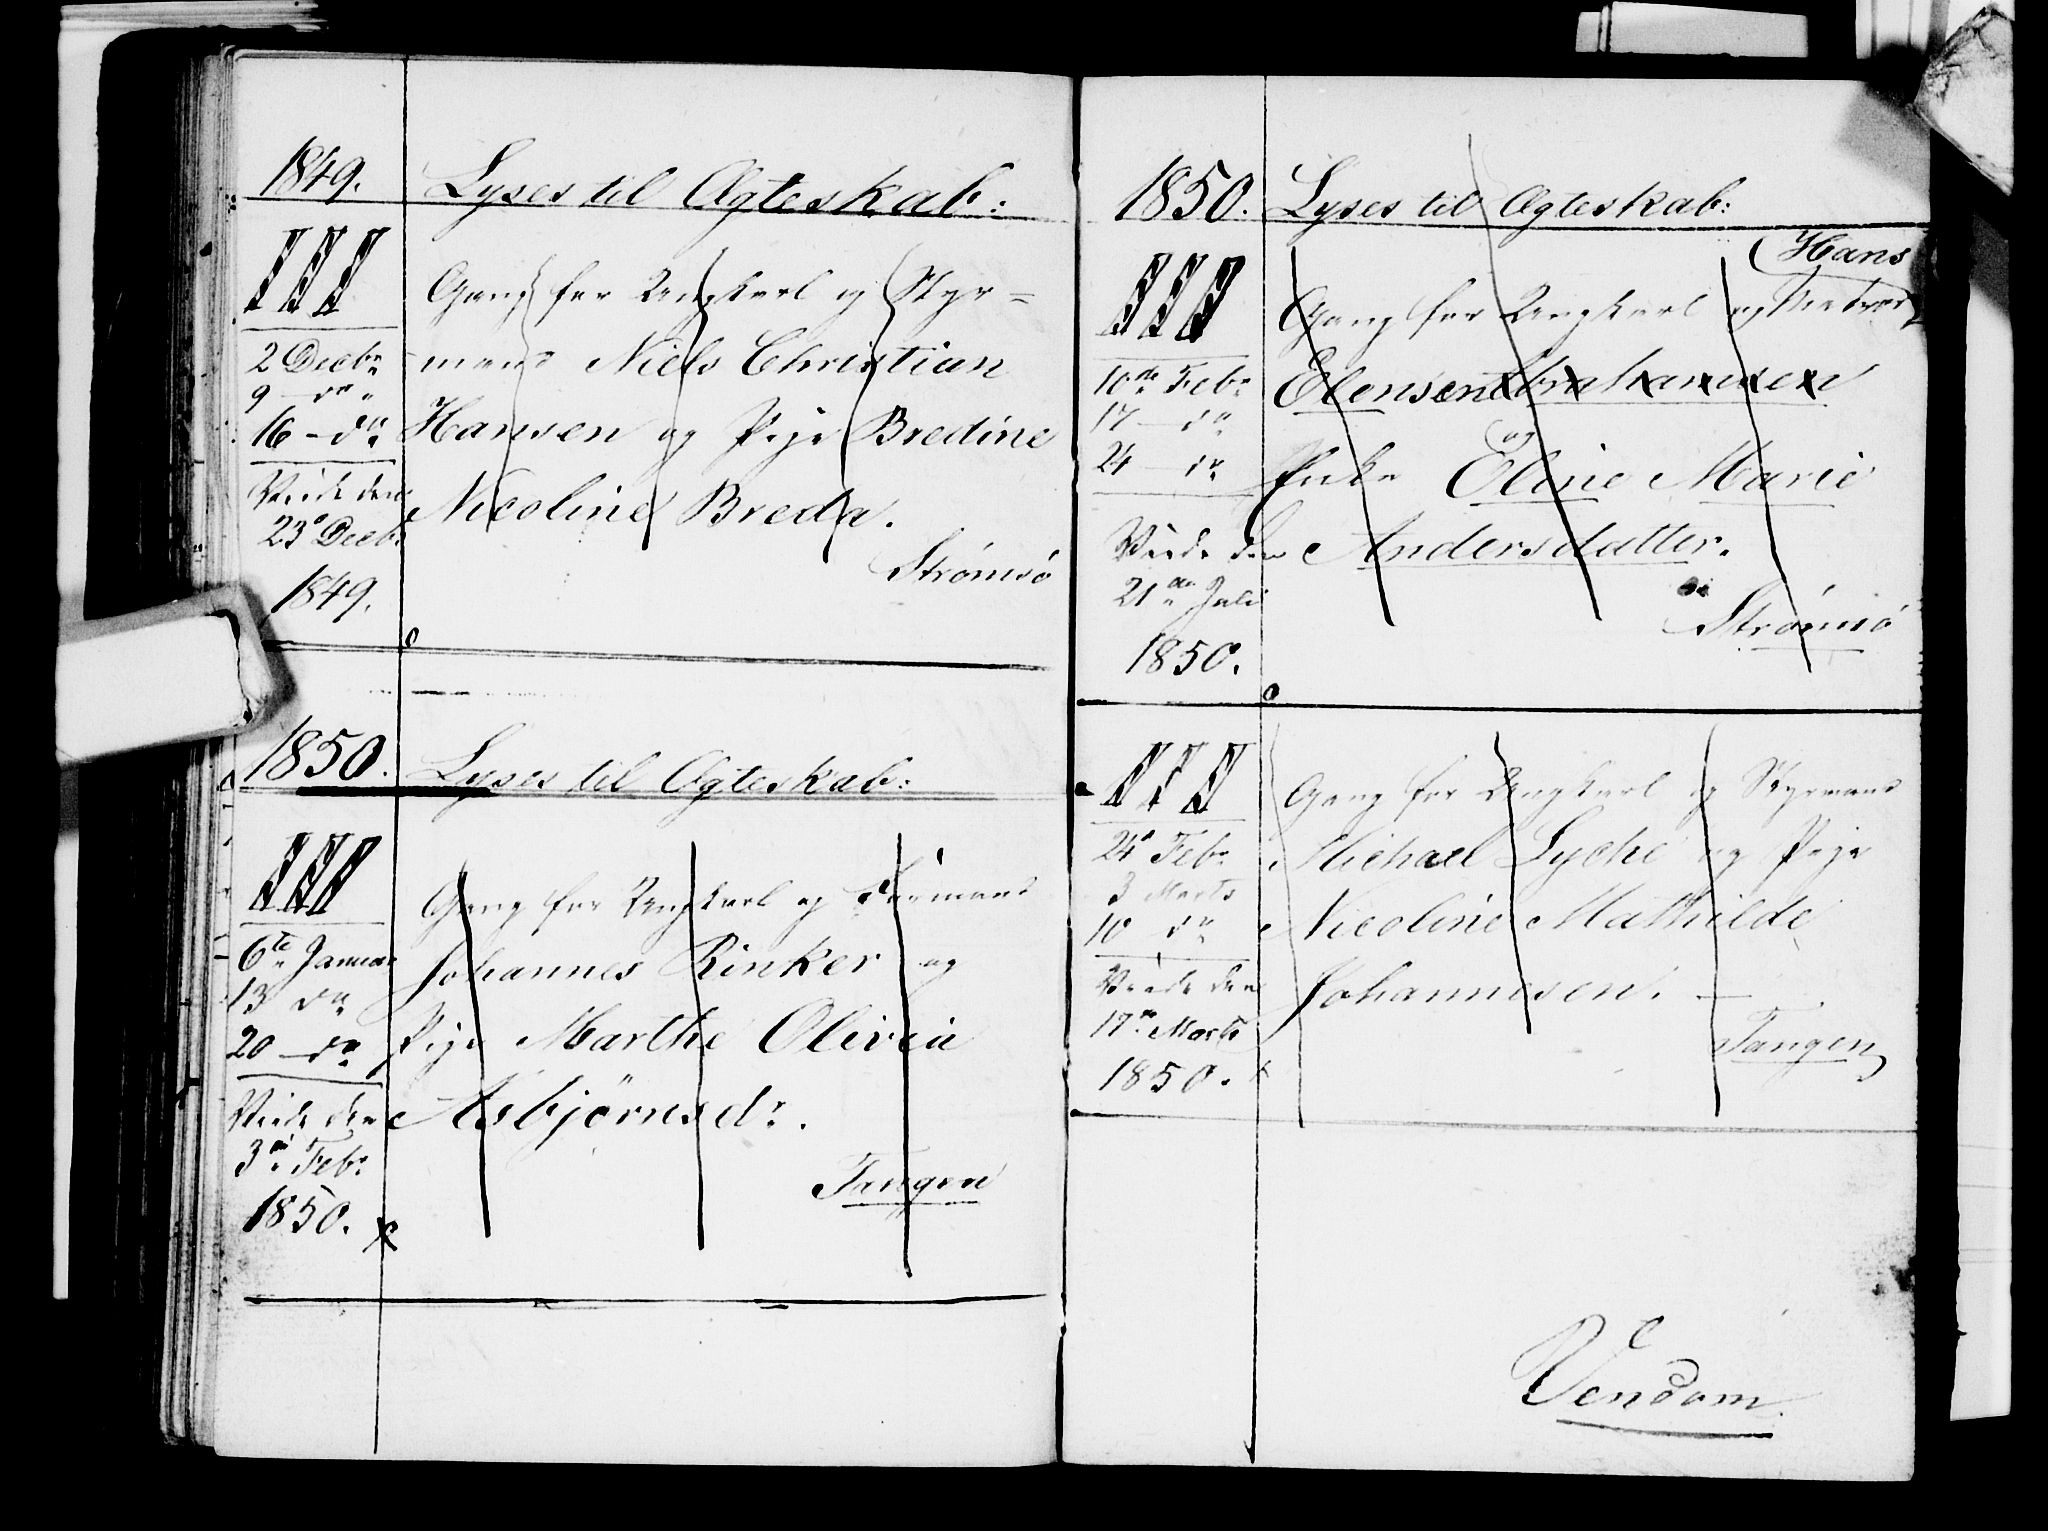 1849.
Lyses til Ægteskab:
III
Gang for Ungkarl og Styr=
2 Decbr
mand Niels Christian
9 - do
16 - do
Hansen og Pige Bredine
Viede den
Nicoline Breda.
23de Decbr
Strømsø
1849.
1850.
Lyses til Ægteskab:
III
Gang for Ungkarl og
6te Januar
Johannes Rinker og
13 do
20 - do
Pige Marthe Olivia
Viede den
Asbjørnsdr.
3die Febr
Tangen
1850.
1850.
Lyses til Ægteskab:
Hans
III
Gang for Ungkarl og Matros
10de Febr
Ellensen Abrahamsen
17 - do
og
24 - do
Enke Eline Marie
Viede den
Andersdatter.
21de Juli
Strømsø
1850.
III
Gang for Ungkarl og Styrmand
24de Febr
Michael Lyche og Pige
3 Marts
10 do
Nicoline Mathilde
Viede den
Johannesen. —
17de Marts
Tangen
1850.
Vendom.